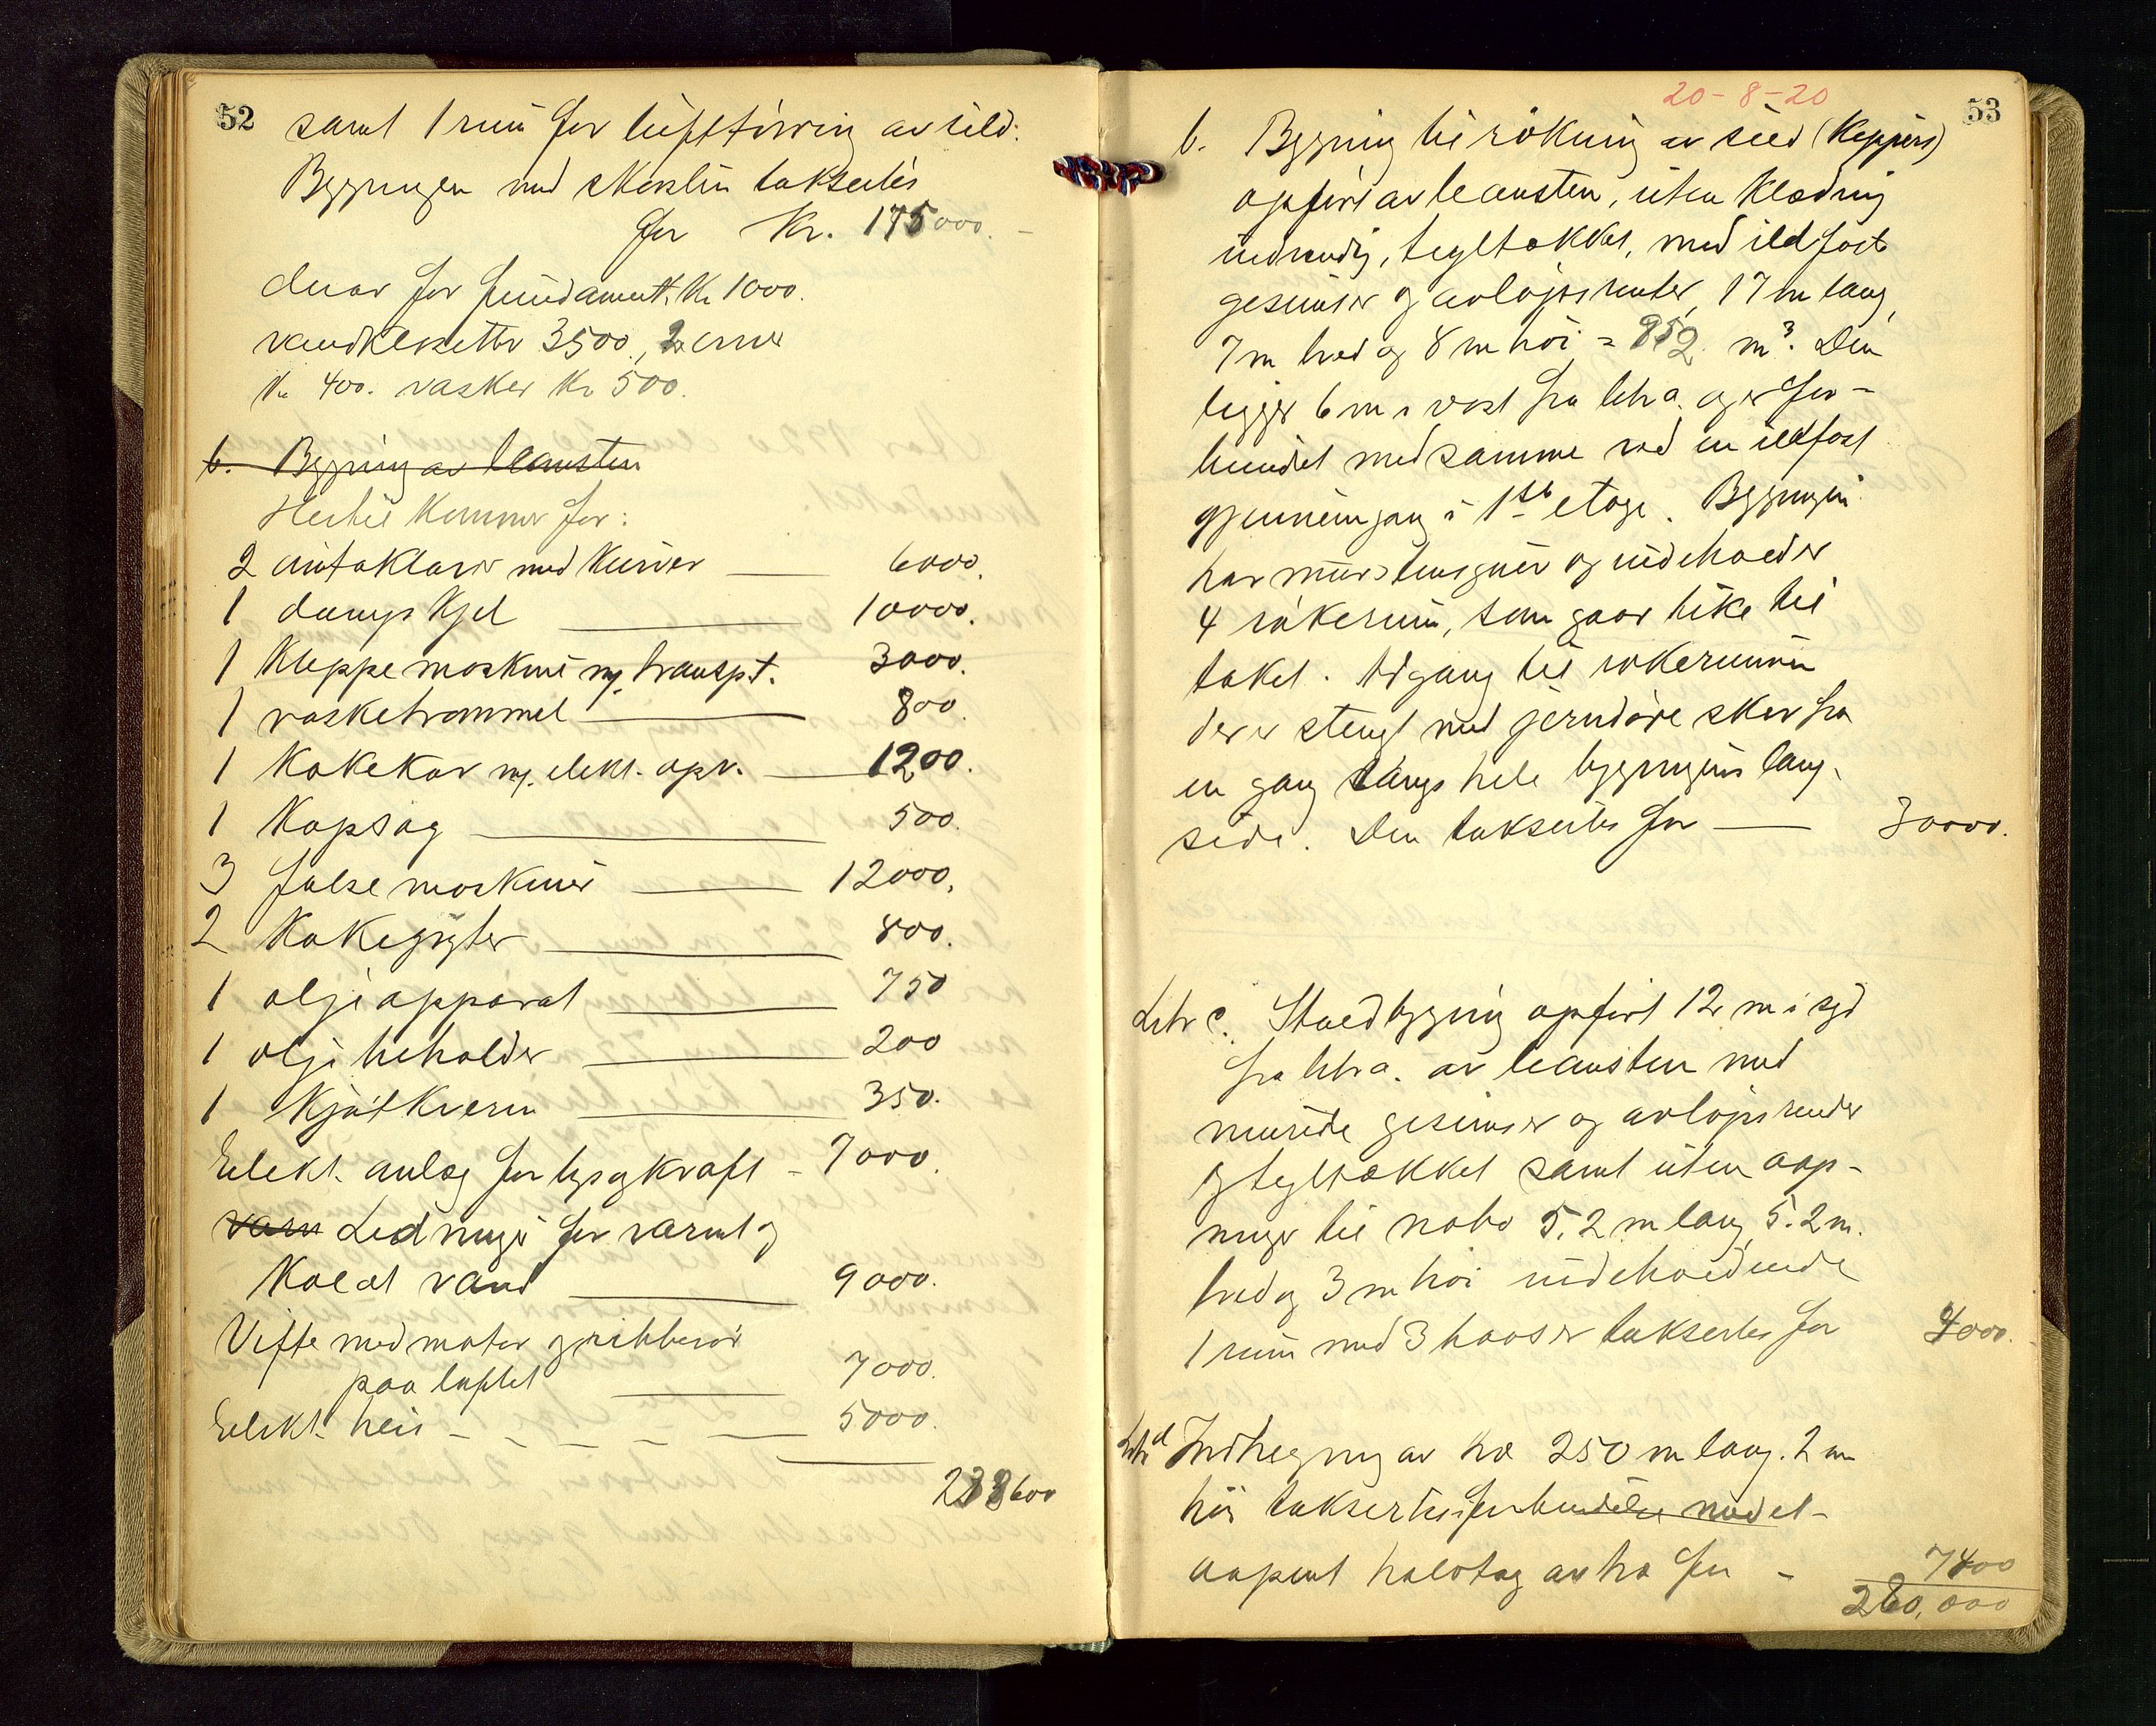 52
samt 1 rum for lufttörring av sild.
Bygningen med skorsten takseres
for Kr. 175000.-
derav for fundament Kr 1000.
vandklosetter 3500, 2 ovner
Kr 400. vasker Kr 500.
b. Bygning av leansten
Hertil kommer for:
2 autoklaver med kurver 6000.
1 dampkjel 10000.
1 Kleppemaskine m/ transpt. 3000.
1 vasketrommel 800.
1 Kokekar m/ elekt. opv. 1200.
1 Kapsag 500.
3 falsemaskiner 12000.
2 Kokegryter 800.
1 oljeapparat 750
1 oljebeholder 200
1 Kjötkvern 350.
Elekt. anlæg for lys og kraft - 7000.
varm Ledninger for varmt og
Koldt vand 9000.
Vifte med motor og ribberör
paa loftet 7000.
Elekt. heis - - - - 5000.
238600
20-8-20
53
b. Bygning til rökning av sild (Keppers)
opfört av leansten, uten Klædning
indvendig, tegltækket, med ildfaste
gesimser og avlöpsrenter, 17 m lang,
7 m bred og 8 m höi = 952 m³. Den
ligger 6 m i vest fra litra a. og er for-
bundet med samme ved en ildfast
gjennemgang i 1ste etage. Bygningen
har murstensgulv og indeholder
4 rökerum, som gaar like til
taket. Adgang til rökerummen
der er stengt med jerndöre sker fra
en gang langs hele bygningens lang-
side. Den takseres for 30000.
Litr c. Staldbygning opfört 12 m i syd
fra litra a. av leansten med
murede gesimser og avlöpsrender
og tegltækket samt uten aap-
ninger til nabo 5.2 m lang, 5.2 m.
bred og 3 m höi indeholdende
1 rum med 3 baaser takseres for 4000.
Litr d Indhegning av træ 250 m lang. 2 m
höi takseres forbindelse med et
aapent halvtag av træ for - 7400
280,000